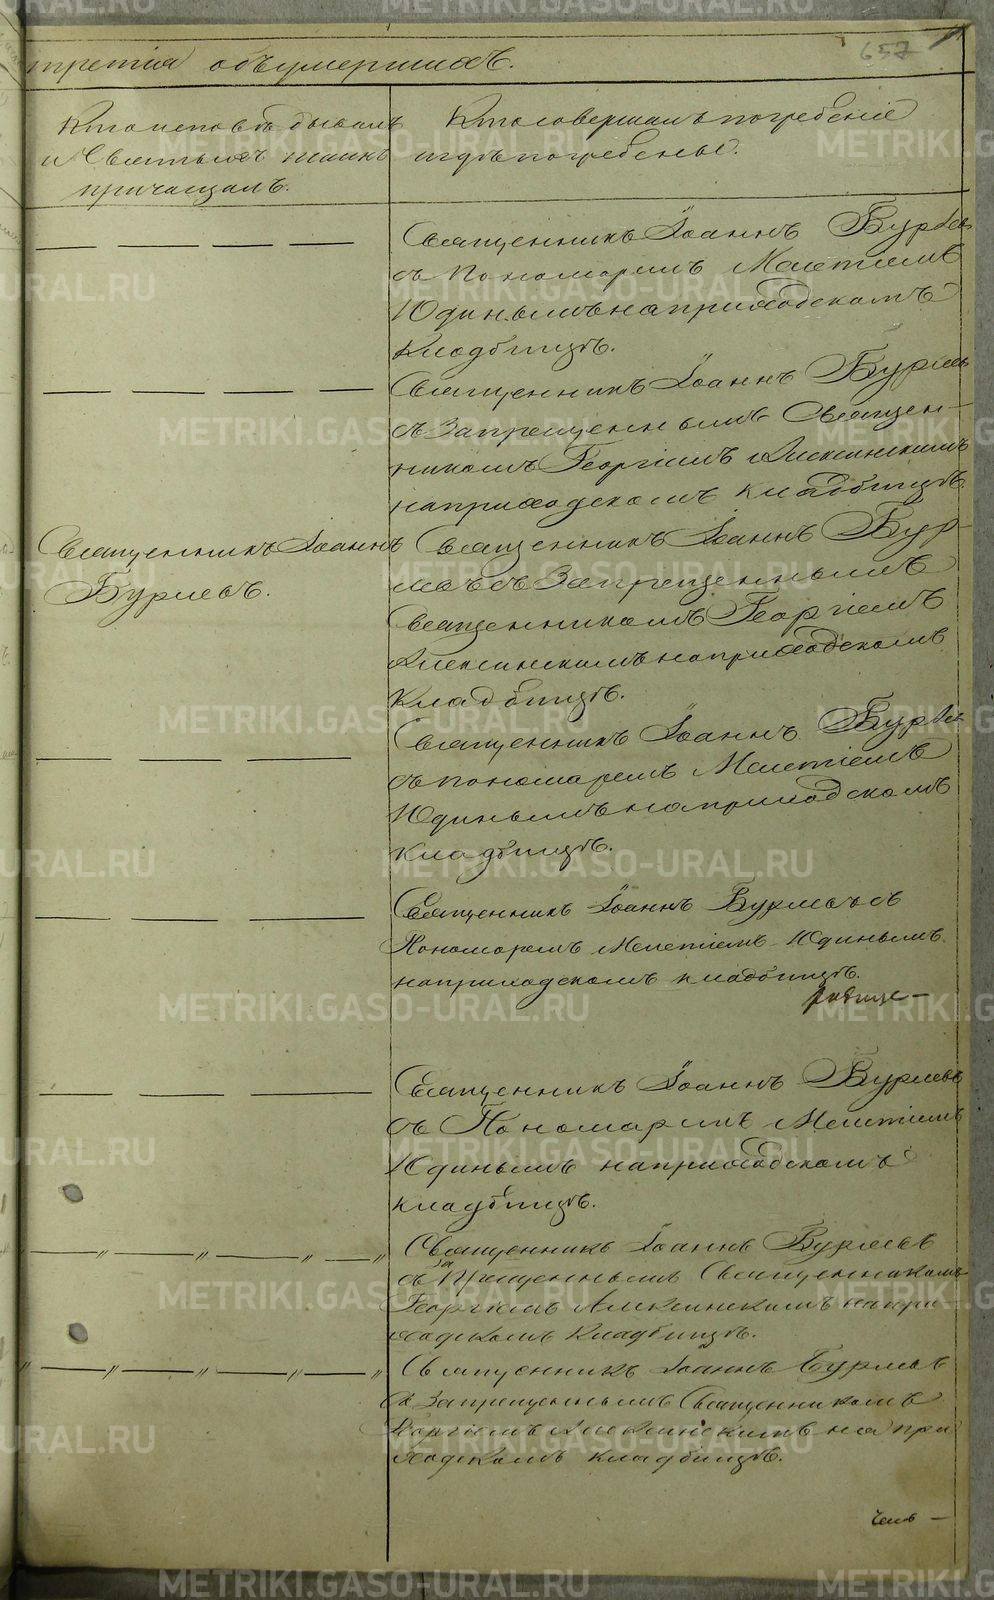 657
третія объ умершихъ.
Кто исповѣдывалъ
и Святыхъ таинъ
причащалъ.
Кто совершалъ погребеніе
и гдѣ погребены.
Священникъ Іоаннъ Бурлев
съ Пономаремъ Мелетіемъ
Юдинымъ на приходскомъ
Кладбищѣ.
Священникъ Іоаннъ Бурлевъ
съ Запрещеннымъ Священ-
никомъ Георгіемъ Алексинскимъ
на приходскомъ кладбищѣ.
Священникъ Іоаннъ
Бурлевъ.
Священникъ Іоаннъ Бур-
левъ съ Запрещеннымъ
Священникомъ Георгіемъ
Алексинскимъ на приходскомъ
Кладбищѣ.
Священникъ Іоаннъ Бурлев
съ пономаремъ Мелетіемъ
Юдинымъ на приходскомъ
кладбищѣ.
Священникъ Іоаннъ Бурлевъ съ
Пономаремъ Мелетіемъ Юдинымъ
на приходскомъ кладбищѣ.
Священникъ Іоаннъ Бурлевъ
съ Пономаремъ Мелетіемъ
Юдинымъ на приходскомъ
кладбищѣ.
Священникъ Іоаннъ Бурлевъ
съ Запрещеннымъ Священникомъ
Георгіемъ Алексинскимъ на при
ходскомъ Кладбищѣ.
Священникъ Іоаннъ Бурлевъ
съ Запрещеннымъ Священникомъ
Георгіемъ Алексинскимъ на при
ходскомъ кладбищѣ.
METRIKI.GASO-URAL.RU